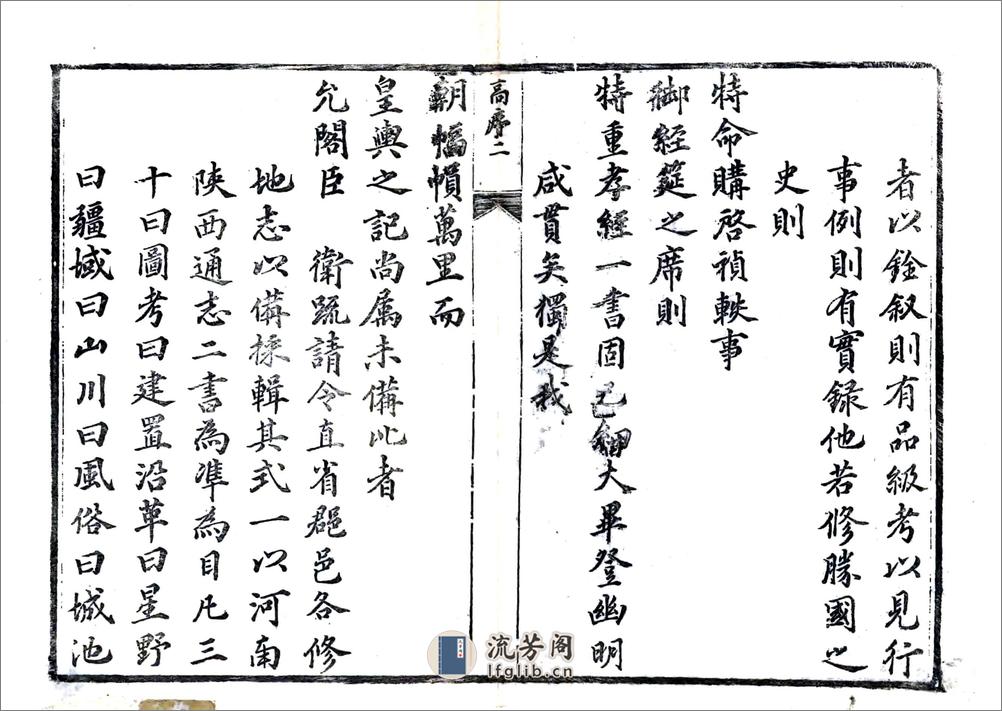 者以銓叙則有品級考以見行
事例則有實録他若修勝國之
史則
特命購啓禎軼事
御經筵之席則
特重孝經一書固已細大畢登幽明
咸貫矣獨是我
高序二
朝幅幀萬里而
皇輿之記尚属未備此者
允閣臣 衛疏請令直省郡邑各修
地志以備採輯其式一以河南
陝西通志二書為準為目凡三
十曰圖考曰建置沿革曰星野
曰疆域曰山川曰風俗曰城池
流芳阁
lfglib.cn